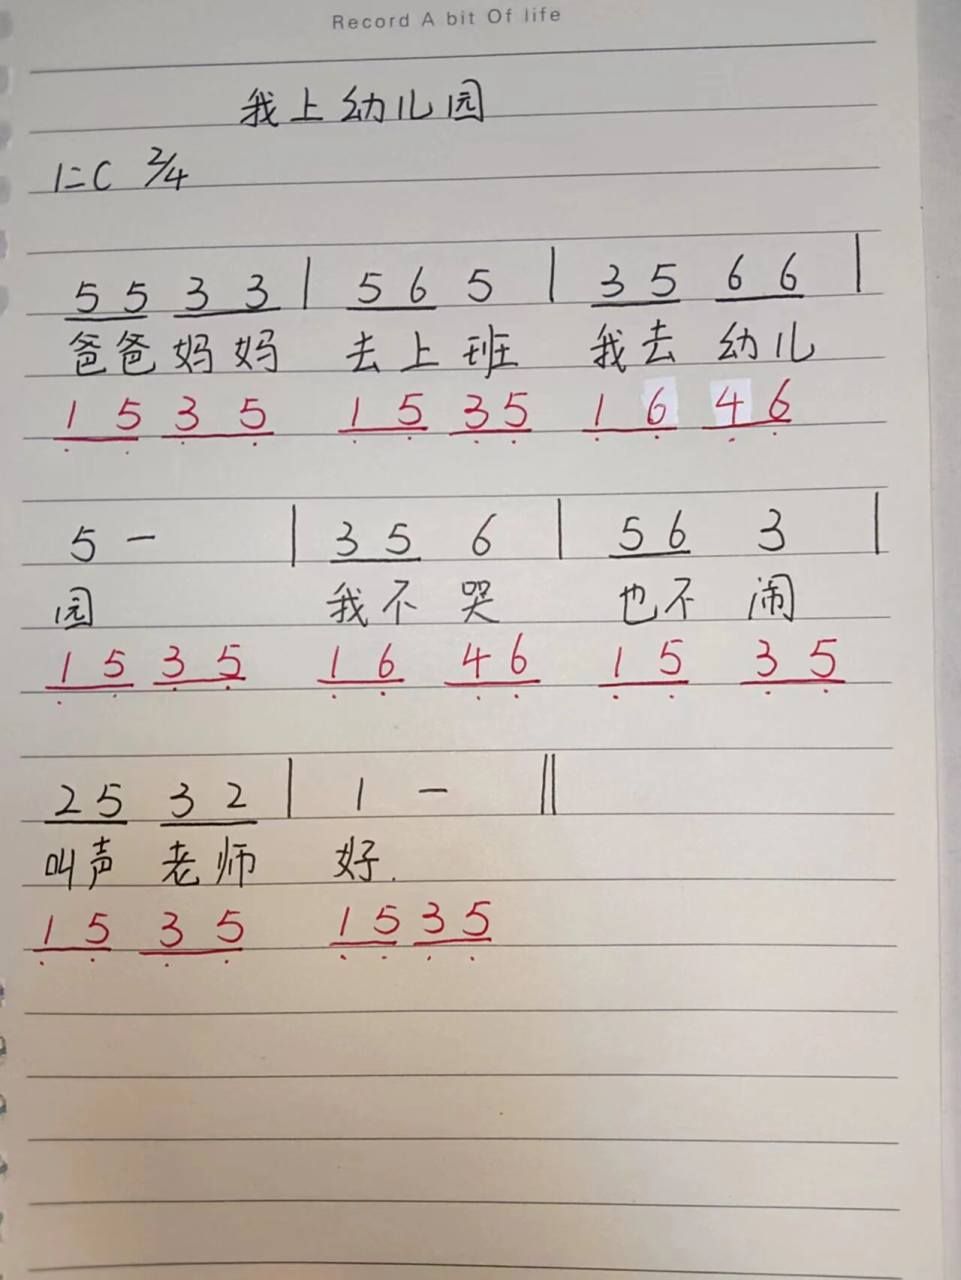 Record A bit Of life
我上幼儿园
1=C 2/4
5 5 3 3 | 5 6 5 | 3 5 6 6 |
爸爸妈妈 去上班 我去 幼儿
1 5 3 5 1 5 3 5 1 6 4 6
5 - | 3 5 6 | 5 6 3 |
园 我不 哭 也不 闹
1 5 3 5 1 6 4 6 1 5 3 5
2 5 3 2 | 1 - ||
叫声 老师 好.
1 5 3 5 1 5 3 5